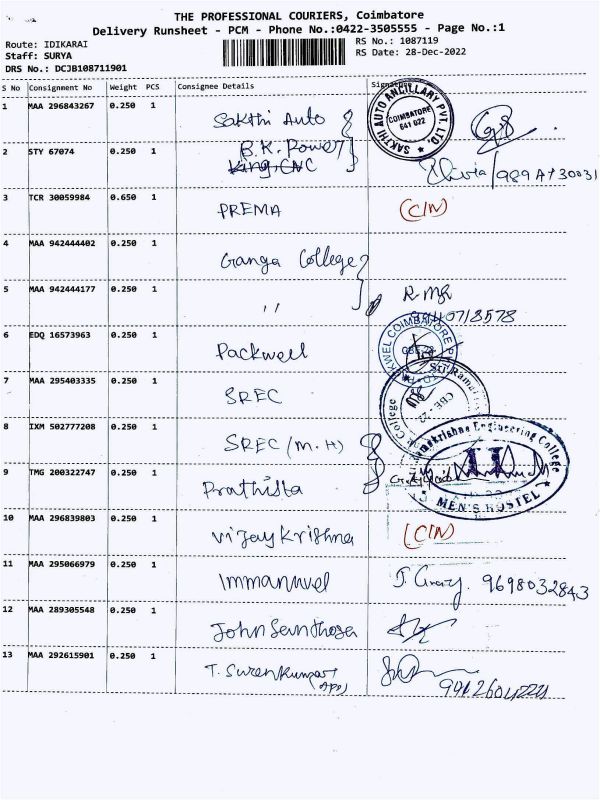 THE PROFESSIONAL COURIERS, Coimbatore
Delivery Runsheet - PCM - Phone No.:0422-3505555 - Page No.:1
Route: IDIKARAI
Staff: SURYA
DRS No.: DCJB108711901
RS No.: 1087119
RS Date: 28-Dec-2022
S No Consignment No Weight PCS Consignee Details Signature
1 MAA 296843267 0.250 1 Sakthi Auto
SAKTHI AUTO ANCILLARY PVT. LTD.
COIMBATORE
641 022
2 STY 67074 0.250 1 B.K. Power
King CNC
3 TCR 30059984 0.650 1 PREMA (CIN)
4 MAA 942444402 0.250 1 Ganga College
5 MAA 942444177 0.250 1 ,,
6 EDQ 16573963 0.250 1 Packwell
7 MAA 295403335 0.250 1 SREC
CBE - 22
8 IXM 502777208 0.250 1 SREC (M.H)
Engineering College
MEN'S HOSTEL
9 TMG 200322747 0.250 1 Prathista
10 MAA 296839803 0.250 1 Vijay Krishna (CIN)
11 MAA 295066979 0.250 1 Immanuvel 9698032843
12 MAA 289305548 0.250 1 John
13 MAA 292615901 0.250 1 T. Surenkumar